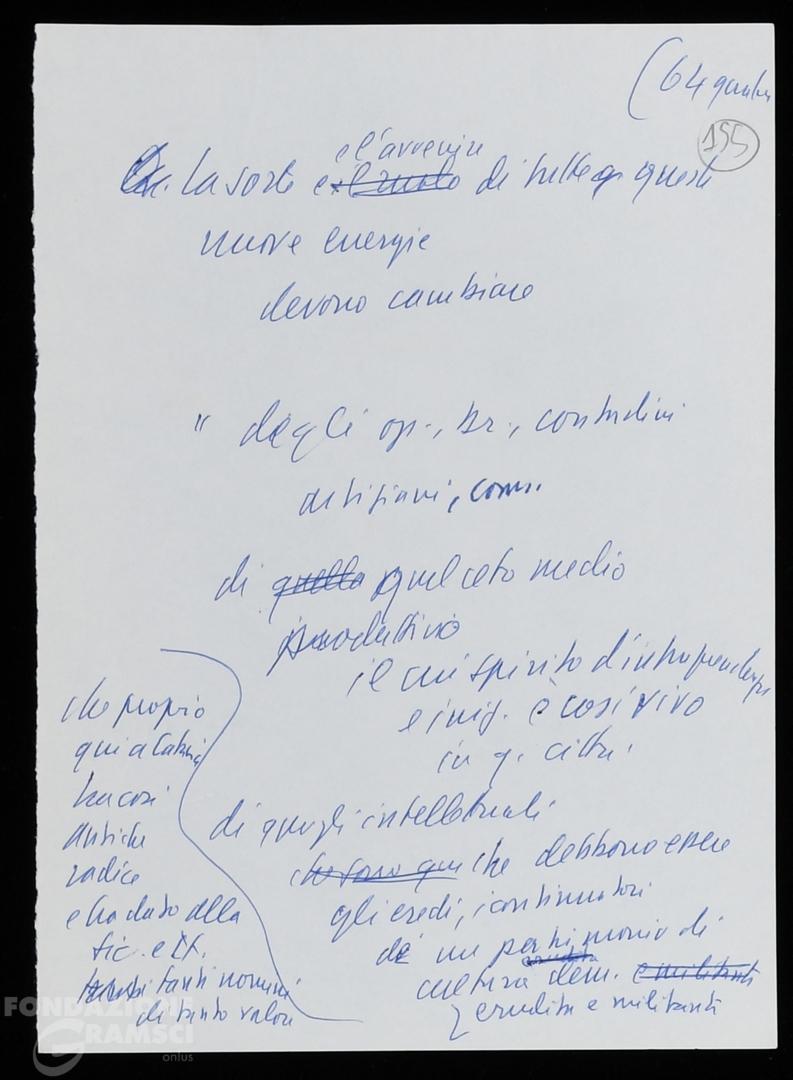 (64
155
e l'avvenire
La sorte e il ruolo di tutte queste
nuove energie
devono cambiare
" degli op., br., contadini
artigiani, com.
di quella quel ceto medio
produttivo
il cui spirito d'intraprendenza
e inig. è così vivo
in q. città.
che proprio
qui a Catania
ha così
antiche
radice
e ha dato alla
Sic. e It.
tanti nomini
di tanto valore
di quegli intellettuali
che sono qui che debbono essere
gli eredi, i continuatori
di un patrimonio di
cultura dem. e militanti
erudita e militanti
FONDAZIONE
GRAMSCI
onlus